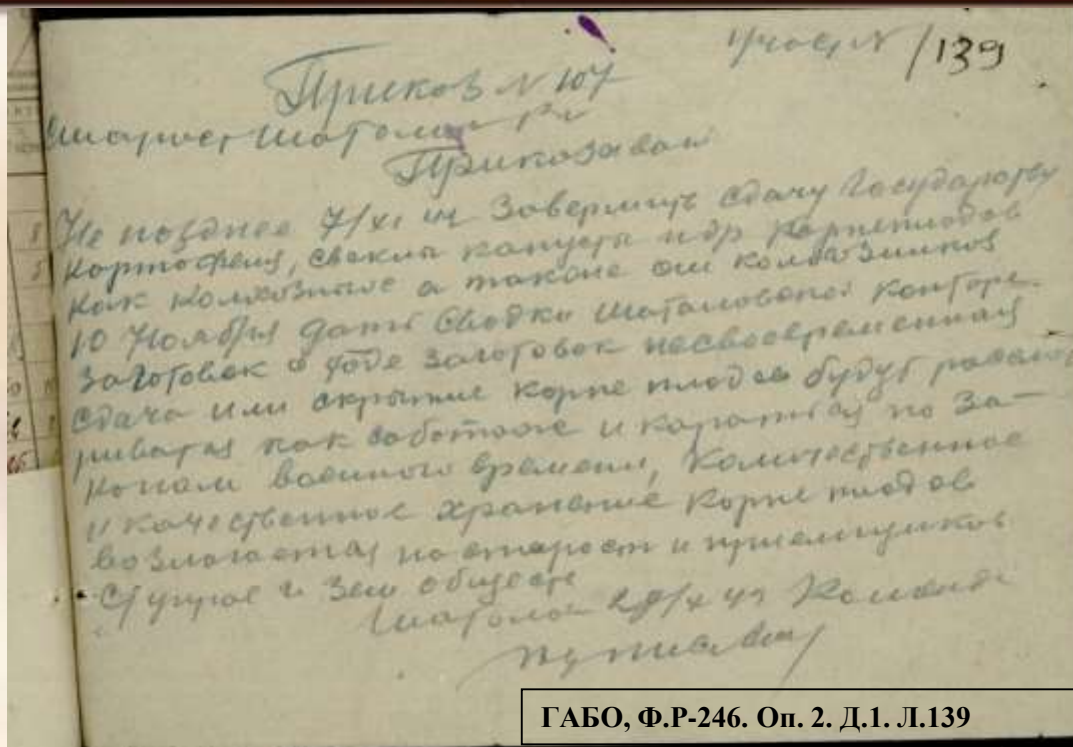 /139
Приказ N 107
Приказаваю
Не позднее 7/XI Завершить сдачу Государству
Картофеля, свеклы капусты и др Корнеплодов
как колхозные а также от колхозников
10 Ноября дать сводки Шаталовской конторе
Заготовок о ходе заготовок несвоевременная
сдача или скрытие корне плодов будут рассмот
риватся как саботаж и каратся по За-
конам военного времени, Количественное
и качественное хранение корне плодов
возлогается на старост и приемщиков
общест
ГАБО, Ф.Р-246. Оп. 2. Д.1. Л.139